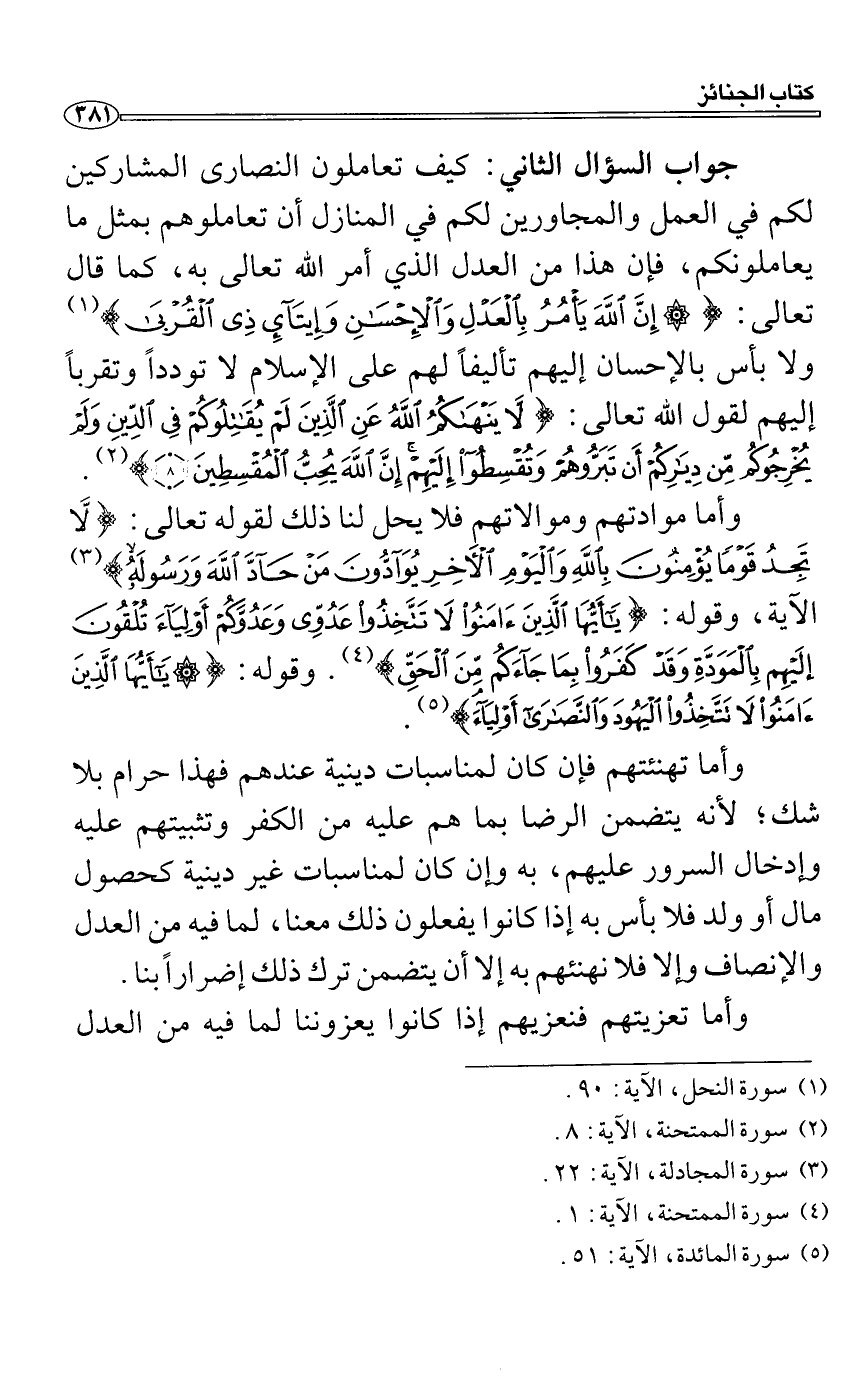 كتاب الجنائز
٣٨١
جواب السؤال الثاني: كيف تعاملون النصارى المشاركين
لكم في العمل والمجاورين لكم في المنازل أن تعاملوهم بمثل ما
يعاملونكم، فإن هذا من العدل الذي أمر الله تعالى به، كما قال
تعالى: ﴿ ۞ إِنَّ ٱللَّهَ يَأۡمُرُ بِٱلۡعَدۡلِ وَٱلۡإِحۡسَٰنِ وَإِيتَآيِٕ ذِي ٱلۡقُرۡبَىٰ ﴾(١)
ولا بأس بالإحسان إليهم تأليفاً لهم على الإسلام لا تودداً وتقرباً
إليهم لقول الله تعالى: ﴿ لَّا يَنۡهَىٰكُمُ ٱللَّهُ عَنِ ٱلَّذِينَ لَمۡ يُقَٰتِلُوكُمۡ فِي ٱلدِّينِ وَلَمۡ
يُخۡرِجُوكُم مِّن دِيَٰرِكُمۡ أَن تَبَرُّوهُمۡ وَتُقۡسِطُوٓاْ إِلَيۡهِمۡۚ إِنَّ ٱللَّهَ يُحِبُّ ٱلۡمُقۡسِطِينَ ٨ ﴾(٢).
وأما موادتهم وموالاتهم فلا يحل لنا ذلك لقوله تعالى: ﴿ لَّا
تَجِدُ قَوۡمٗا يُؤۡمِنُونَ بِٱللَّهِ وَٱلۡيَوۡمِ ٱلۡأٓخِرِ يُوَآدُّونَ مَنۡ حَآدَّ ٱللَّهَ وَرَسُولَهُۥ ﴾(٣)
الآية، وقوله: ﴿ يَٰٓأَيُّهَا ٱلَّذِينَ ءَامَنُواْ لَا تَتَّخِذُواْ عَدُوِّي وَعَدُوَّكُمۡ أَوۡلِيَآءَ تُلۡقُونَ
إِلَيۡهِم بِٱلۡمَوَدَّةِ وَقَدۡ كَفَرُواْ بِمَا جَآءَكُم مِّنَ ٱلۡحَقِّ ﴾(٤). وقوله: ﴿ ۞ يَٰٓأَيُّهَا ٱلَّذِينَ
ءَامَنُواْ لَا تَتَّخِذُواْ ٱلۡيَهُودَ وَٱلنَّصَٰرَىٰٓ أَوۡلِيَآءَۘ ﴾(٥).
وأما تهنئتهم فإن كان لمناسبات دينية عندهم فهذا حرام بلا
شك؛ لأنه يتضمن الرضا بما هم عليه من الكفر وتثبيتهم عليه
وإدخال السرور عليهم، به وإن كان لمناسبات غير دينية كحصول
مال أو ولد فلا بأس به إذا كانوا يفعلون ذلك معنا، لما فيه من العدل
والإنصاف وإلا فلا نهنئهم به إلا أن يتضمن ترك ذلك إضراراً بنا.
وأما تعزيتهم فنعزيهم إذا كانوا يعزوننا لما فيه من العدل
(١) سورة النحل، الآية: ٩٠.
(٢) سورة الممتحنة، الآية: ٨.
(٣) سورة المجادلة، الآية: ٢٢.
(٤) سورة الممتحنة، الآية: ١.
(٥) سورة المائدة، الآية: ٥١.